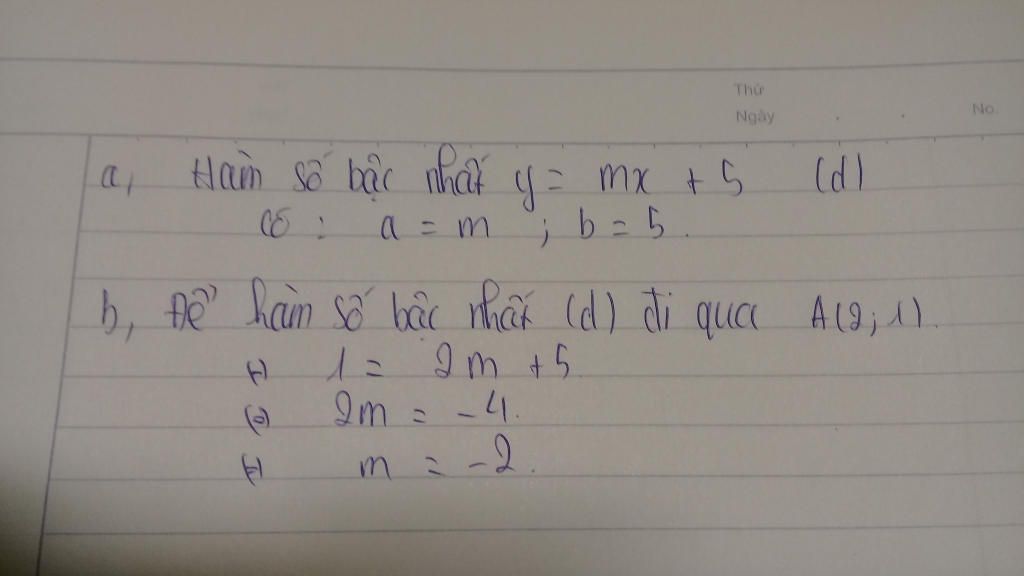 Thứ
Ngày . . No.
a, Hàm số bậc nhất y = mx + 5 (d)
Có : a = m ; b = 5.
b, Để hàm số bậc nhất (d) đi qua A(2; 1).
(=) 1 = 2m + 5
(=) 2m = -4.
(=) m = -2.